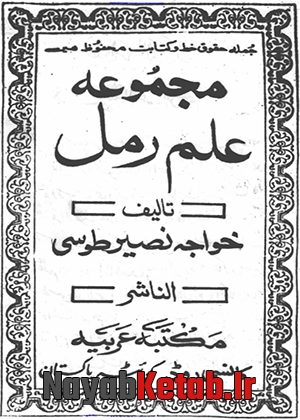 جملہ حقوق خط و کتابت محفوظ ہیں
مجموعه
علم رمل
تالیف
خواجه نصیر طوسی
الناشر
مکتبة عربیه
پاکستان
NayabKetab.Ir